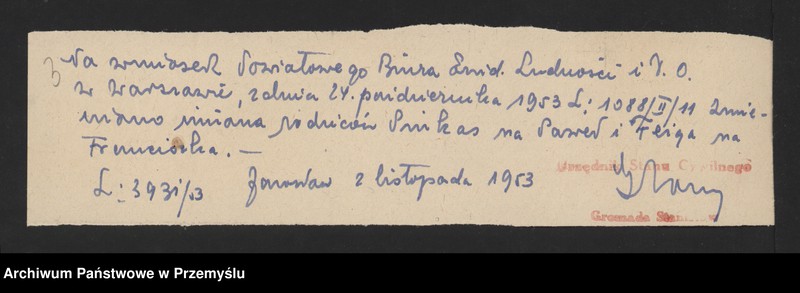 3) Na wniosek Powiatowego Biura Ewid. Ludności i D. O.
w Warszawie, z dnia 24. października 1953 L: 1088/II/11 zmie-
niono imiona rodziców Pinkas na Paweł i Feiga na
Franciszka. —
L: 3931/53 Jarosław 2 listopada 1953
Urzędnik Stanu Cywilnego
Gromada
Archiwum Państwowe w Przemyślu